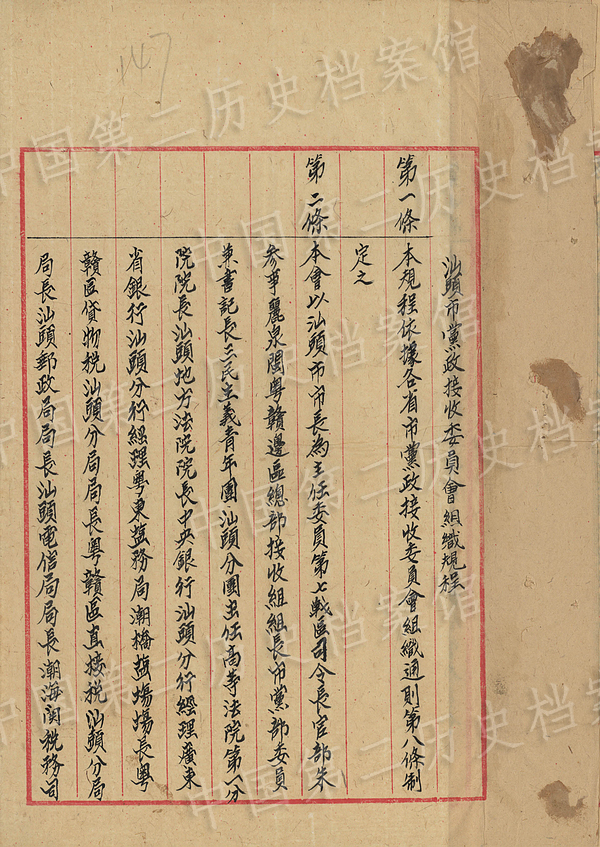 147
汕頭市黨政接收委員會組織規程
第一條 本規程依據各省市黨政接收委員會組織通則第八條制
定之
第二條 本會以汕頭市市長為主任委員第七戰區司令長官部朱
參事麗泉閩粤贛邊區總部接收組組長市黨部委員
兼書記長三民主義青年團汕頭分團主任高等法院第一分
院院長汕頭地方法院院長中央銀行汕頭分行經理廣東
省銀行汕頭分行經理粤東鹽務局潮橋鹽場場長粤
贛區貨物稅汕頭分局局長粤贛區直接稅汕頭分局
局長汕頭郵政局局長汕頭電信局局長潮海関稅務司
中国第二历史档案馆